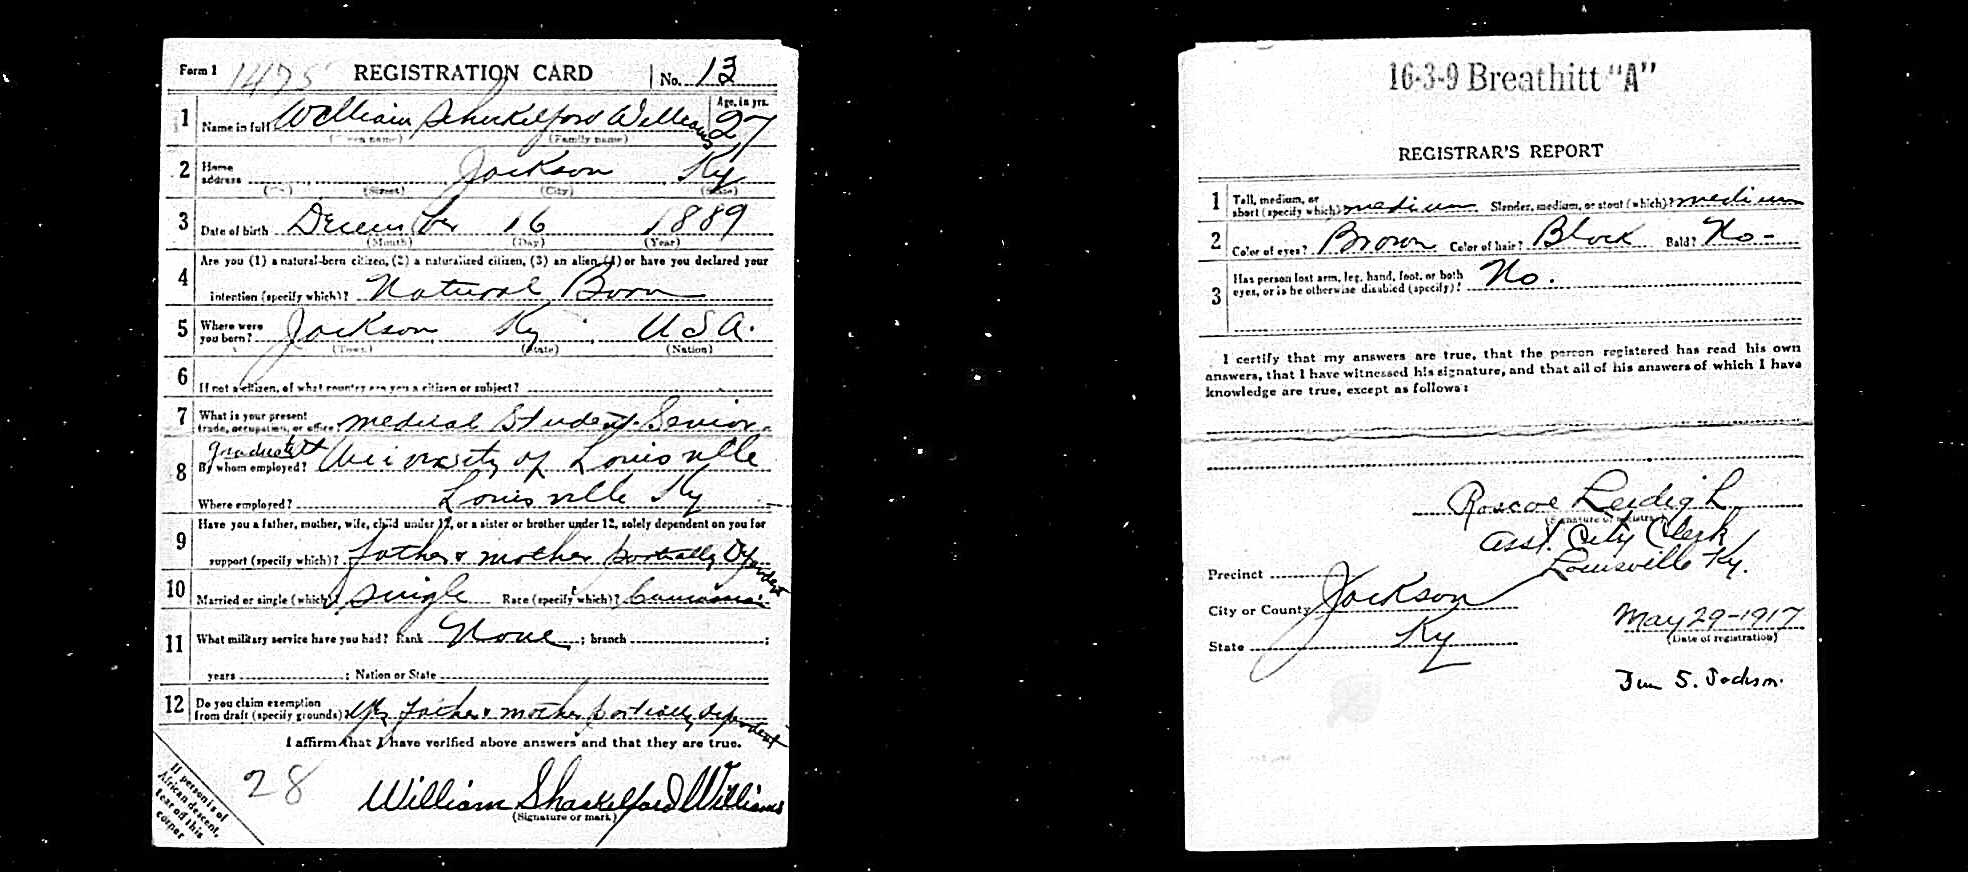 Form 1 1475 REGISTRATION CARD No. 13
1 Name in full William Schackelford Williams Age, in yrs. 27
(Given name) (Family name)
2 Home address Jackson Ky
(No.) (Street) (City) (State)
3 Date of birth December 16 1889
(Month) (Day) (Year)
Are you (1) a natural-born citizen, (2) a naturalized citizen, (3) an alien, (4) or have you declared your
4 intention (specify which)? Natural Born
5 Where were you born? Jackson Ky. U S A.
(Town) (State) (Nation)
6 If not a citizen, of what country are you a citizen or subject?
7 What is your present trade, occupation, or office? Medical Student Senior
8 By whom employed? University of Louisville
Where employed? Louisville Ky
Have you a father, mother, wife, child under 12, or a sister or brother under 12, solely dependent on you for
9 support (specify which)? father & mother partially Dependent
10 Married or single (which)? Single Race (specify which)? Caucasian
11 What military service have you had? Rank None ; branch ;
years ; Nation or State
12 Do you claim exemption from draft (specify grounds)? Yes Father & mother partially dependent
I affirm that I have verified above answers and that they are true.
28
William Shackelford Williams
(Signature or mark)
If person is of
African descent,
tear off this
corner
16-3-9 Breathitt "A"
REGISTRAR'S REPORT
1 Tall, medium, or short (specify which)? medium Slender, medium, or stout (which)? medium
2 Color of eyes? Brown Color of hair? Black Bald? No -
3 Has person lost arm, leg, hand, foot, or both
eyes, or is he otherwise disabled (specify)? No.
I certify that my answers are true, that the person registered has read his own
answers, that I have witnessed his signature, and that all of his answers of which I have
knowledge are true, except as follows:
Roscoe Leidigh
(Signature of registrar)
Asst. City Clerk
Louisville Ky.
Precinct
City or County Jackson
State Ky
May 29-1917
(Date of registration)
S. Jackson.